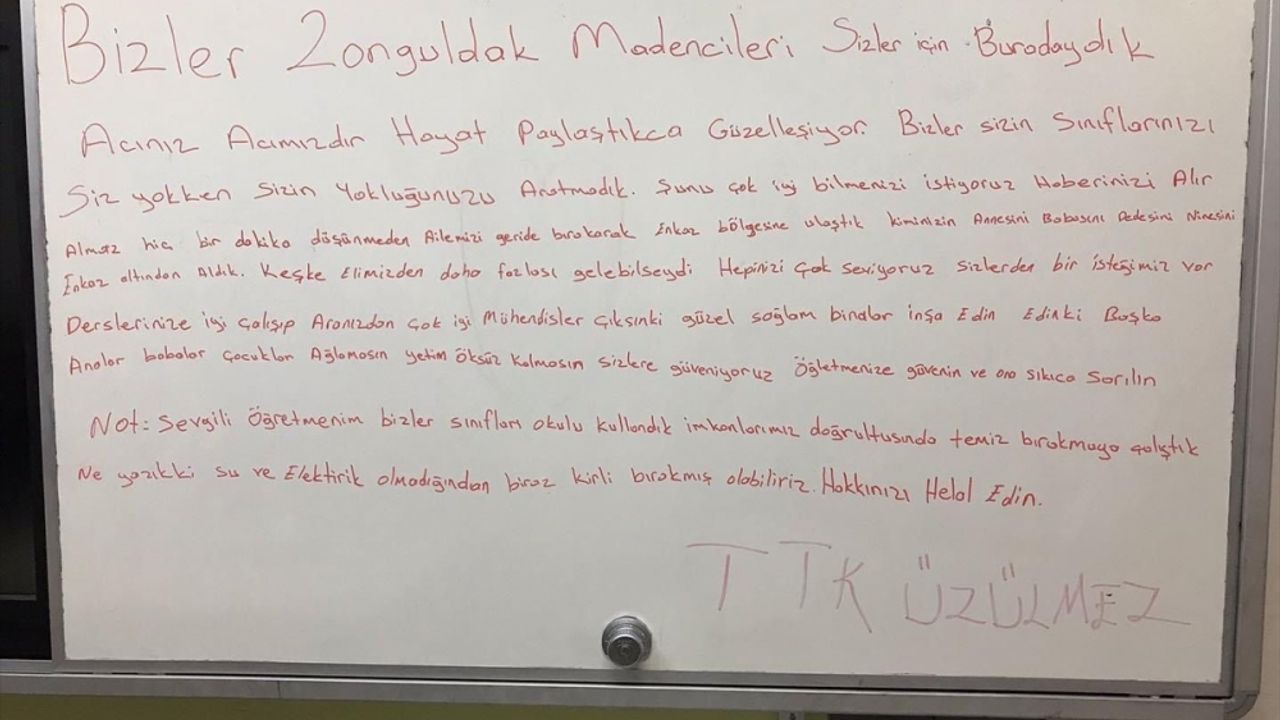 Bizler Zonguldak Madencileri Sizler için Buradaydık
Acınız Acımızdır Hayat Paylaştıkca Güzelleşiyor. Bizler sizin Sınıflarınızı
Siz yokken Sizin Yokluğunuzu Aratmadık. Şunu çok iyi bilmenizi istiyoruz Haberinizi Alır
Almaz hic bir dakika düşünmeden Ailemizi geride bırakarak Enkaz bölgesine ulaştık kiminizin Annesini Babasını Dedesini Ninesini
Enkaz altından Aldık. Keşke Elimizden daha fazlası gelebilseydi Hepinizi Çok seviyoruz sizlerden bir isteğimiz var
Derslerinize iyi çalışıp Aranızdan çok iyi Mühendisler Çıksınki güzel sağlam binalar inşa Edin Edinki Başka
Analar babalar çocuklar Ağlamasın yetim öksüz kalmasın sizlere güveniyoruz Öğletmenize güvenin ve ona sıkıca Sarılın
Not: Sevgili Öğretmenim bizler sınıfları okulu kullandık imkanlarımız doğrultusunda temiz bırakmaya çalıştık
Ne yazıkki su ve Elektirik olmadığından biraz kirli bırakmış olabiliriz. Hakkınızı Helal Edin.
TTK ÜZÜLMEZ